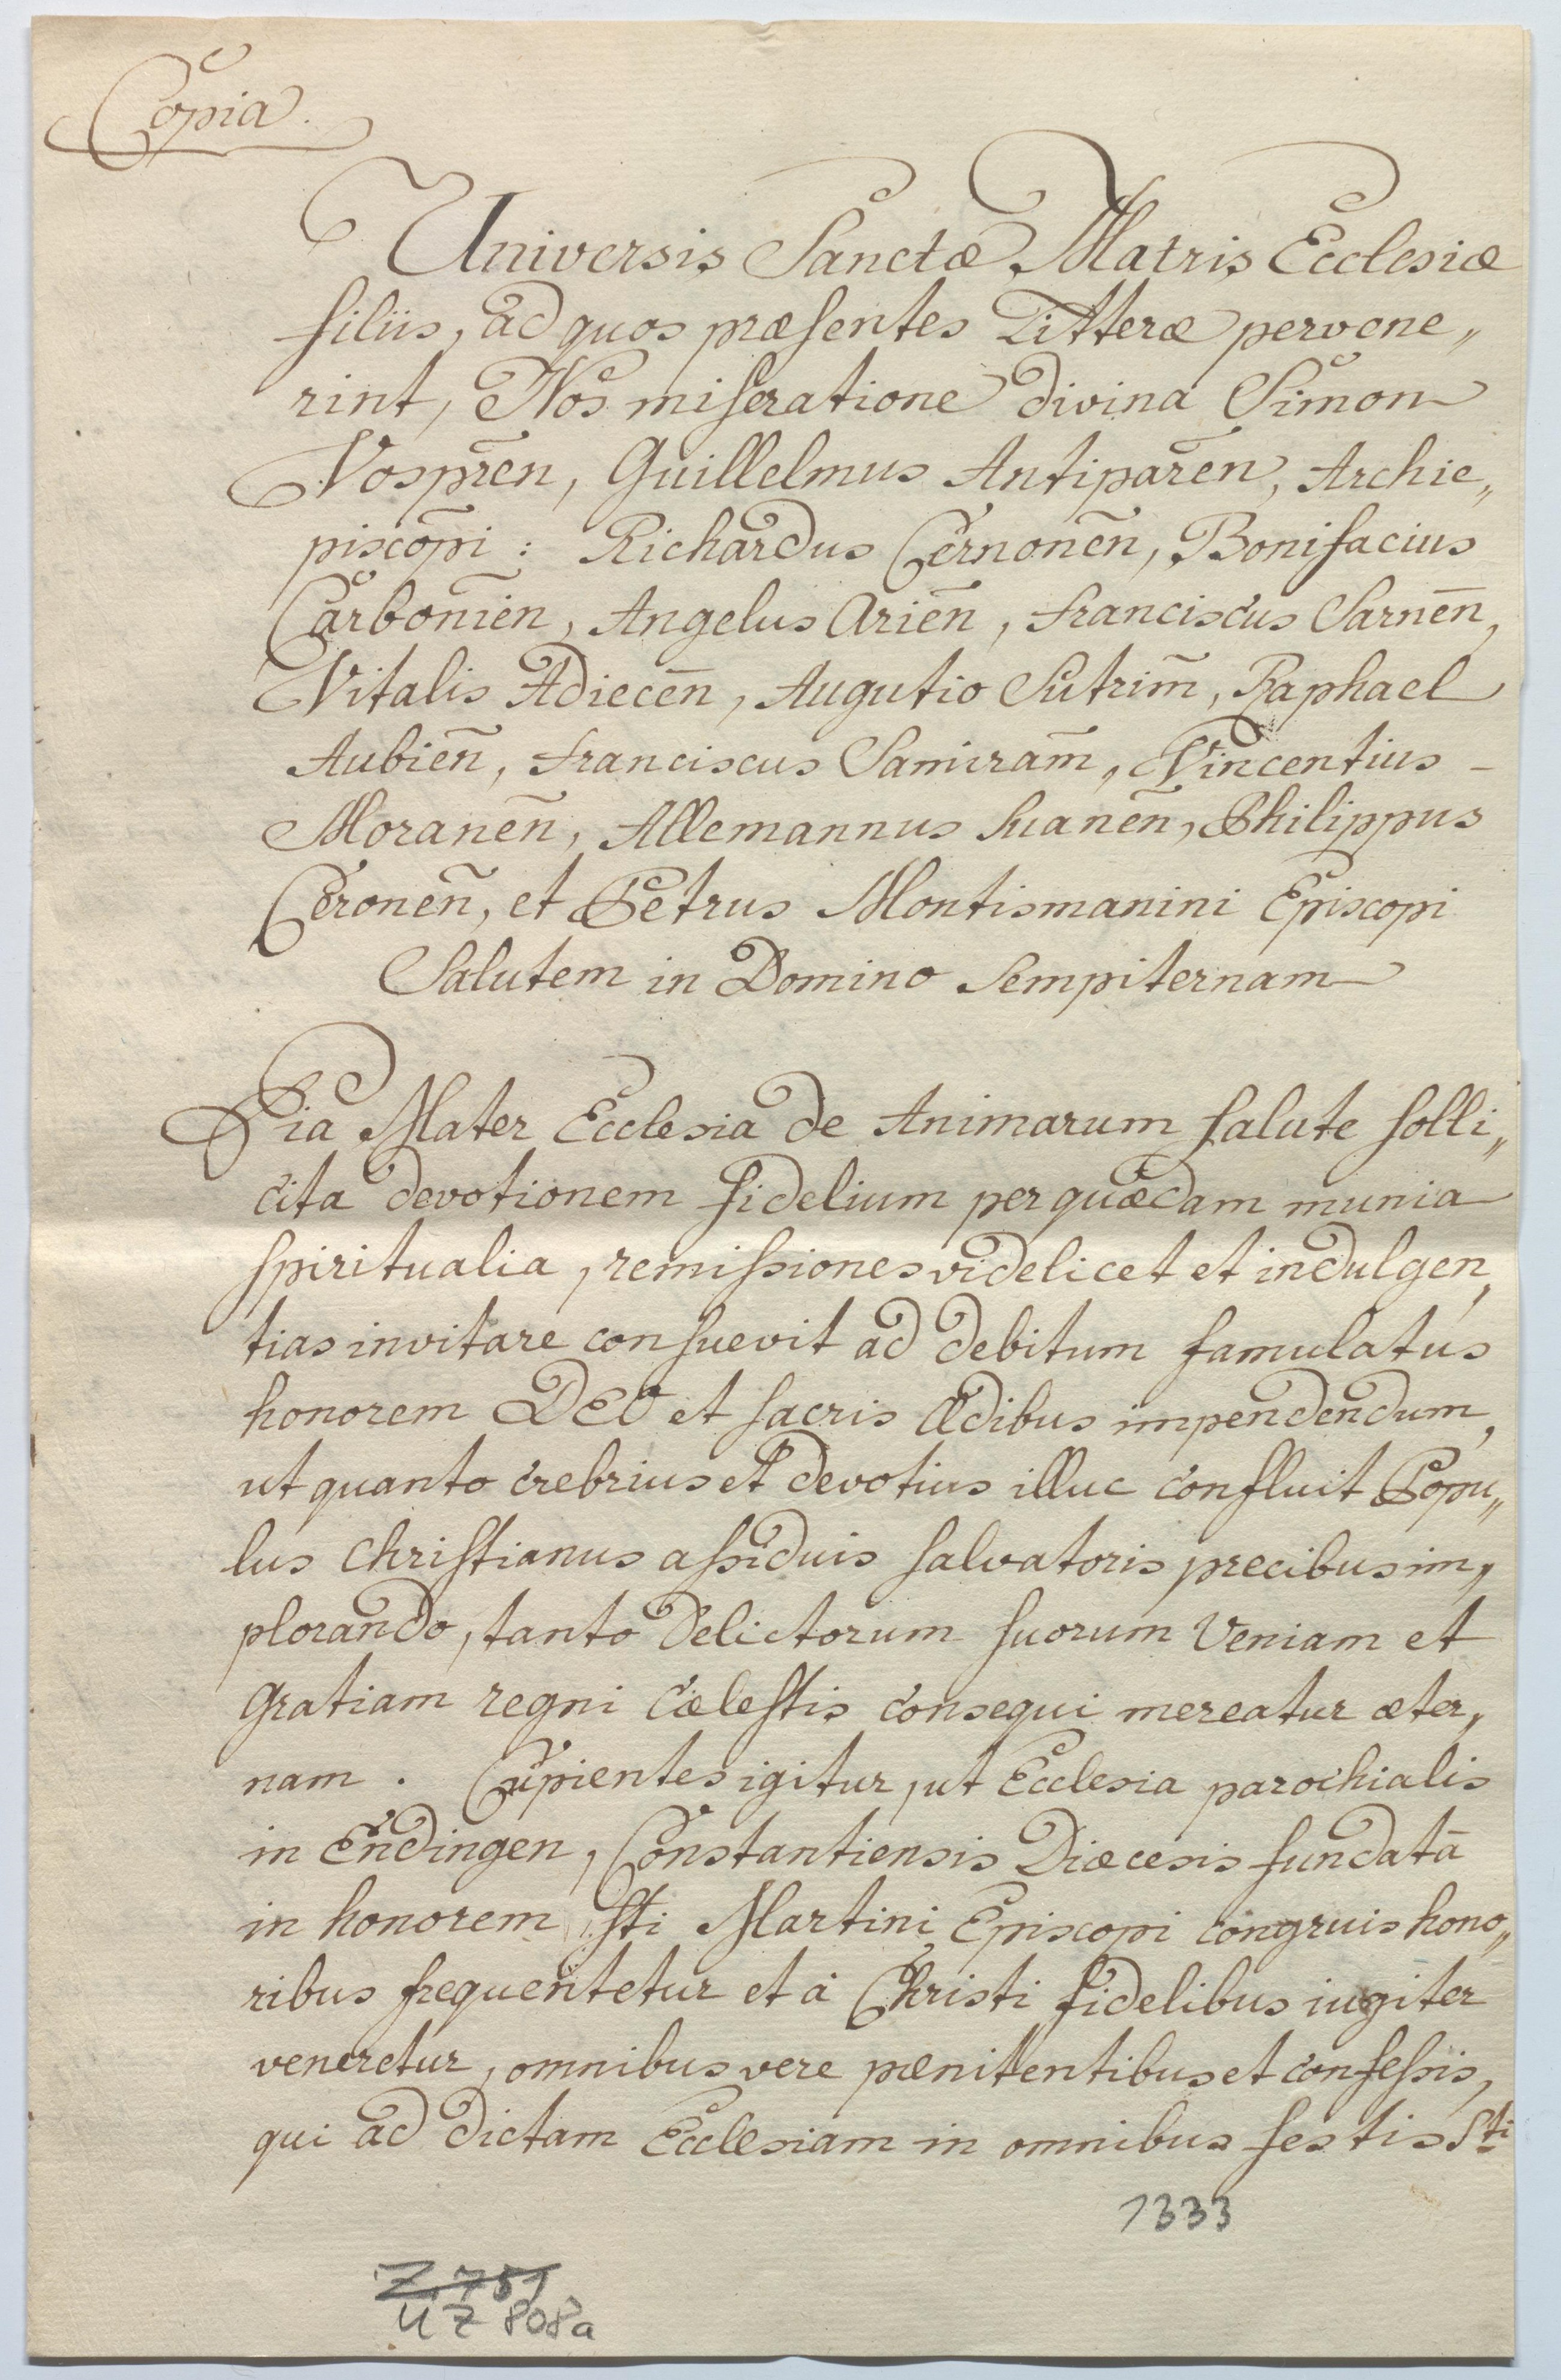 Copia.
Universis Sanctæ Matris Ecclesiæ
filiis, ad quos præsentes Litteræ pervene„
rint, Nos miseratione divina Simon
Vosprēn, Guillelmus Antiparēn, Archie„
piscōpi : Richardus Cernonēn, Bonifacius
Carboniēn, Angelus Ariēn, Franciscus Sarnēn,
Vitalis Adiecēn, Augutio Sutrim̄, Raphael
Aubiēn, Franciscus Samiram̄, Vincentius –
Moranēn, Allemannus Suanēn, Philippus
Ceronēn, et Petrus Montismanini Episcopi
Salutem in Domino Sempiternam
Pia Mater Ecclesia de Animarum salute solli„
cita devotionem fidelium per quædam munia
spiritualia, remissiones videlicet et indulgen,
tias invitare consuevit ad debitum famulatus
honorem DEO et sacris ædibus impendendum,
ut quanto crebrius et devotius illuc confluit Popu„
lus Christianus assiduis salvatoris precibus im,
plorando, tanto delictorum suorum Veniam et
gratiam regni cælestis consequi mereatur æter,
nam . Cupientes igitur, ut Ecclesia parochialis
in Endingen, Constantiensis Diœcesis fundata
in honorem sti Martini Episcopi congruis hono„
ribus frequentetur et à Christi fidelibus iugiter
veneretur, omnibus vere pœnitentibus et confessis,
qui ad dictam Ecclesiam in omnibus festis Sti
1333
Z. 751
UZ 808a